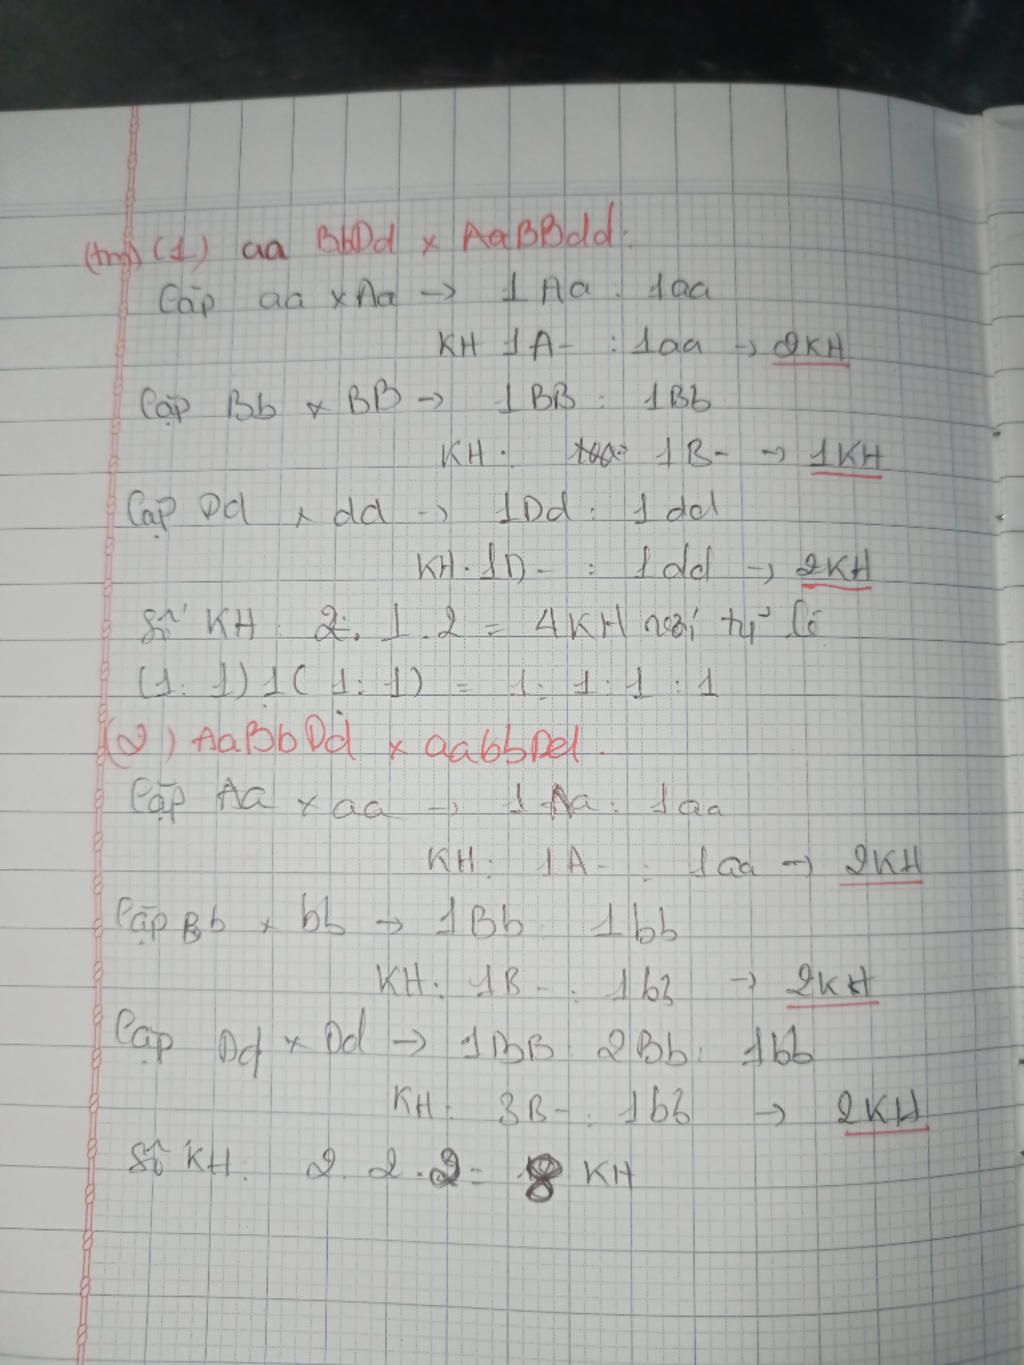 (tm) (1) aa BbDd × AaBBdd.
Cặp aa × Aa → 1Aa : 1aa
KH 1A- : 1aa → 2KH
Cặp Bb × BB → 1BB : 1Bb
KH: 1B- → 1KH
Cặp Dd × dd → 1Dd : 1dd
KH: 1D- : 1dd → 2KH
Số KH: 2. 1. 2 = 4KH với tỷ lệ
(1:1)1(1:1) = 1:1:1:1
(2) AaBbDd × aabbDd.
Cặp Aa × aa → 1Aa : 1aa
KH: 1A- : 1aa → 2KH
Cặp Bb × bb → 1Bb 1bb
KH: 1B- : 1bb → 2KH
Cặp Dd × Dd → 1BB : 2Bb : 1bb
KH: 3B- : 1bb → 2KH
Số KH: 2. 2. 2 = 8 KH